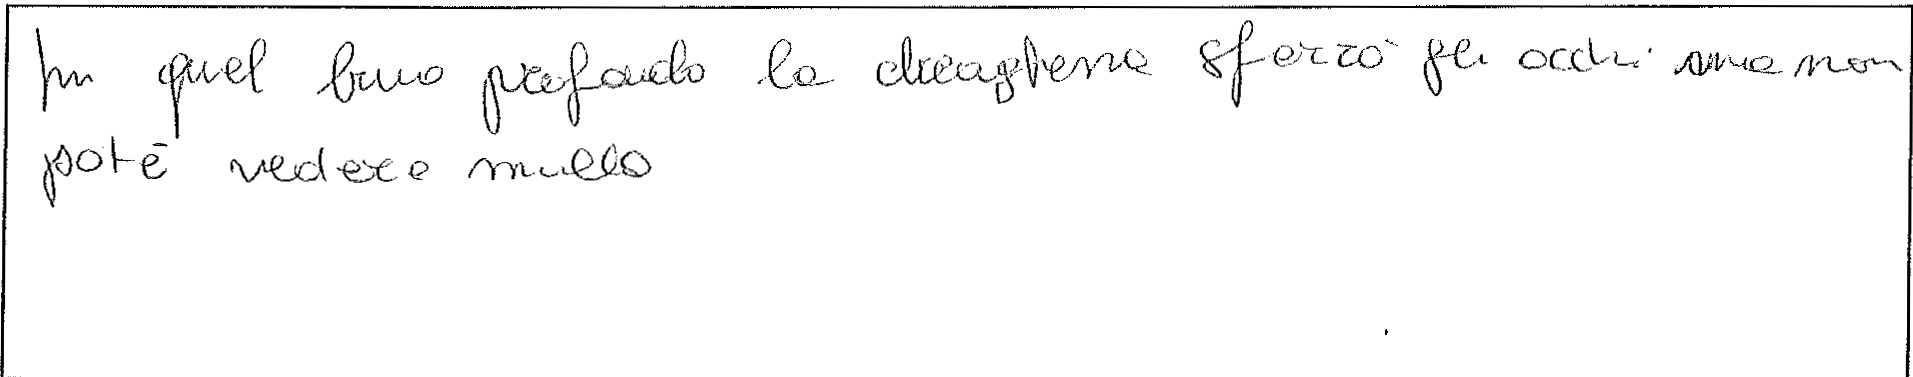 In quel buio profondo la dragonessa sforzò gli occhi ma non
poté vedere nulla